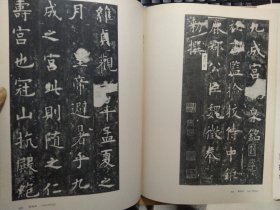 九成宮醴泉銘
祕書監檢校侍中鉅
鹿郡公臣魏徵奉
勑撰
維貞觀六年孟夏之
月皇帝避暑乎九
成之宮此則隨之仁
壽宮也冠山抗殿絕